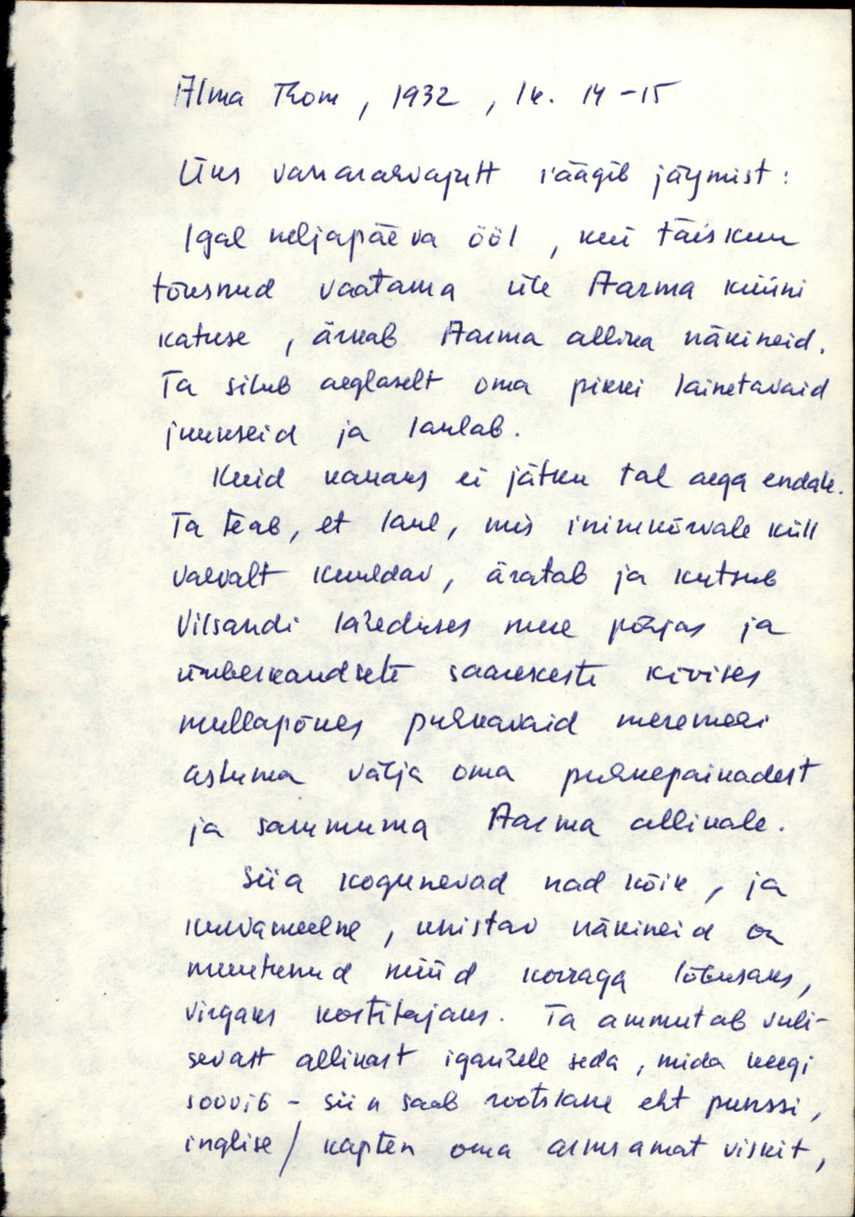 Alma Thom, 1932, lk. 14-15
Üks vanarahvajutt räägib järgmist:
Igal neljapäeva ööl, kui täiskuu
tõusnud vaatama üle Aarma küüni
katuse, ärkab Aarma allika näkineid.
Ta silub aeglaselt oma pikki lainetavaid
juukseid ja laulab.
Kuid kauaks ei jätku tal aega endale.
Ta teab, et laul, mis inimkõrvale küll
vaevalt kuuldav, äratab ja kutsub
Vilsandi läheduses mere põhjas ja
ümberkaudsete saarekeste kivises
mullapõues puhkavaid meremehi
astuma välja oma puhkepaikadest
ja sammuma Aarma allikale.
Siia kogunevad nad kõik, ja
kurvameelne, unistav näkineid on
muutunud nüüd korraga lõbusaks,
virgaks kostitajaks. Ta ammutab vuli-
sevast allikast igaühele seda, mida keegi
soovib - siin saab rootslane eht punssi,
inglise/ kapten oma armsamat viskit,